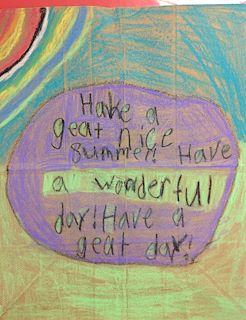 Have a
geat nice
summer! Have
a wonderful
day! Have a
geat day!